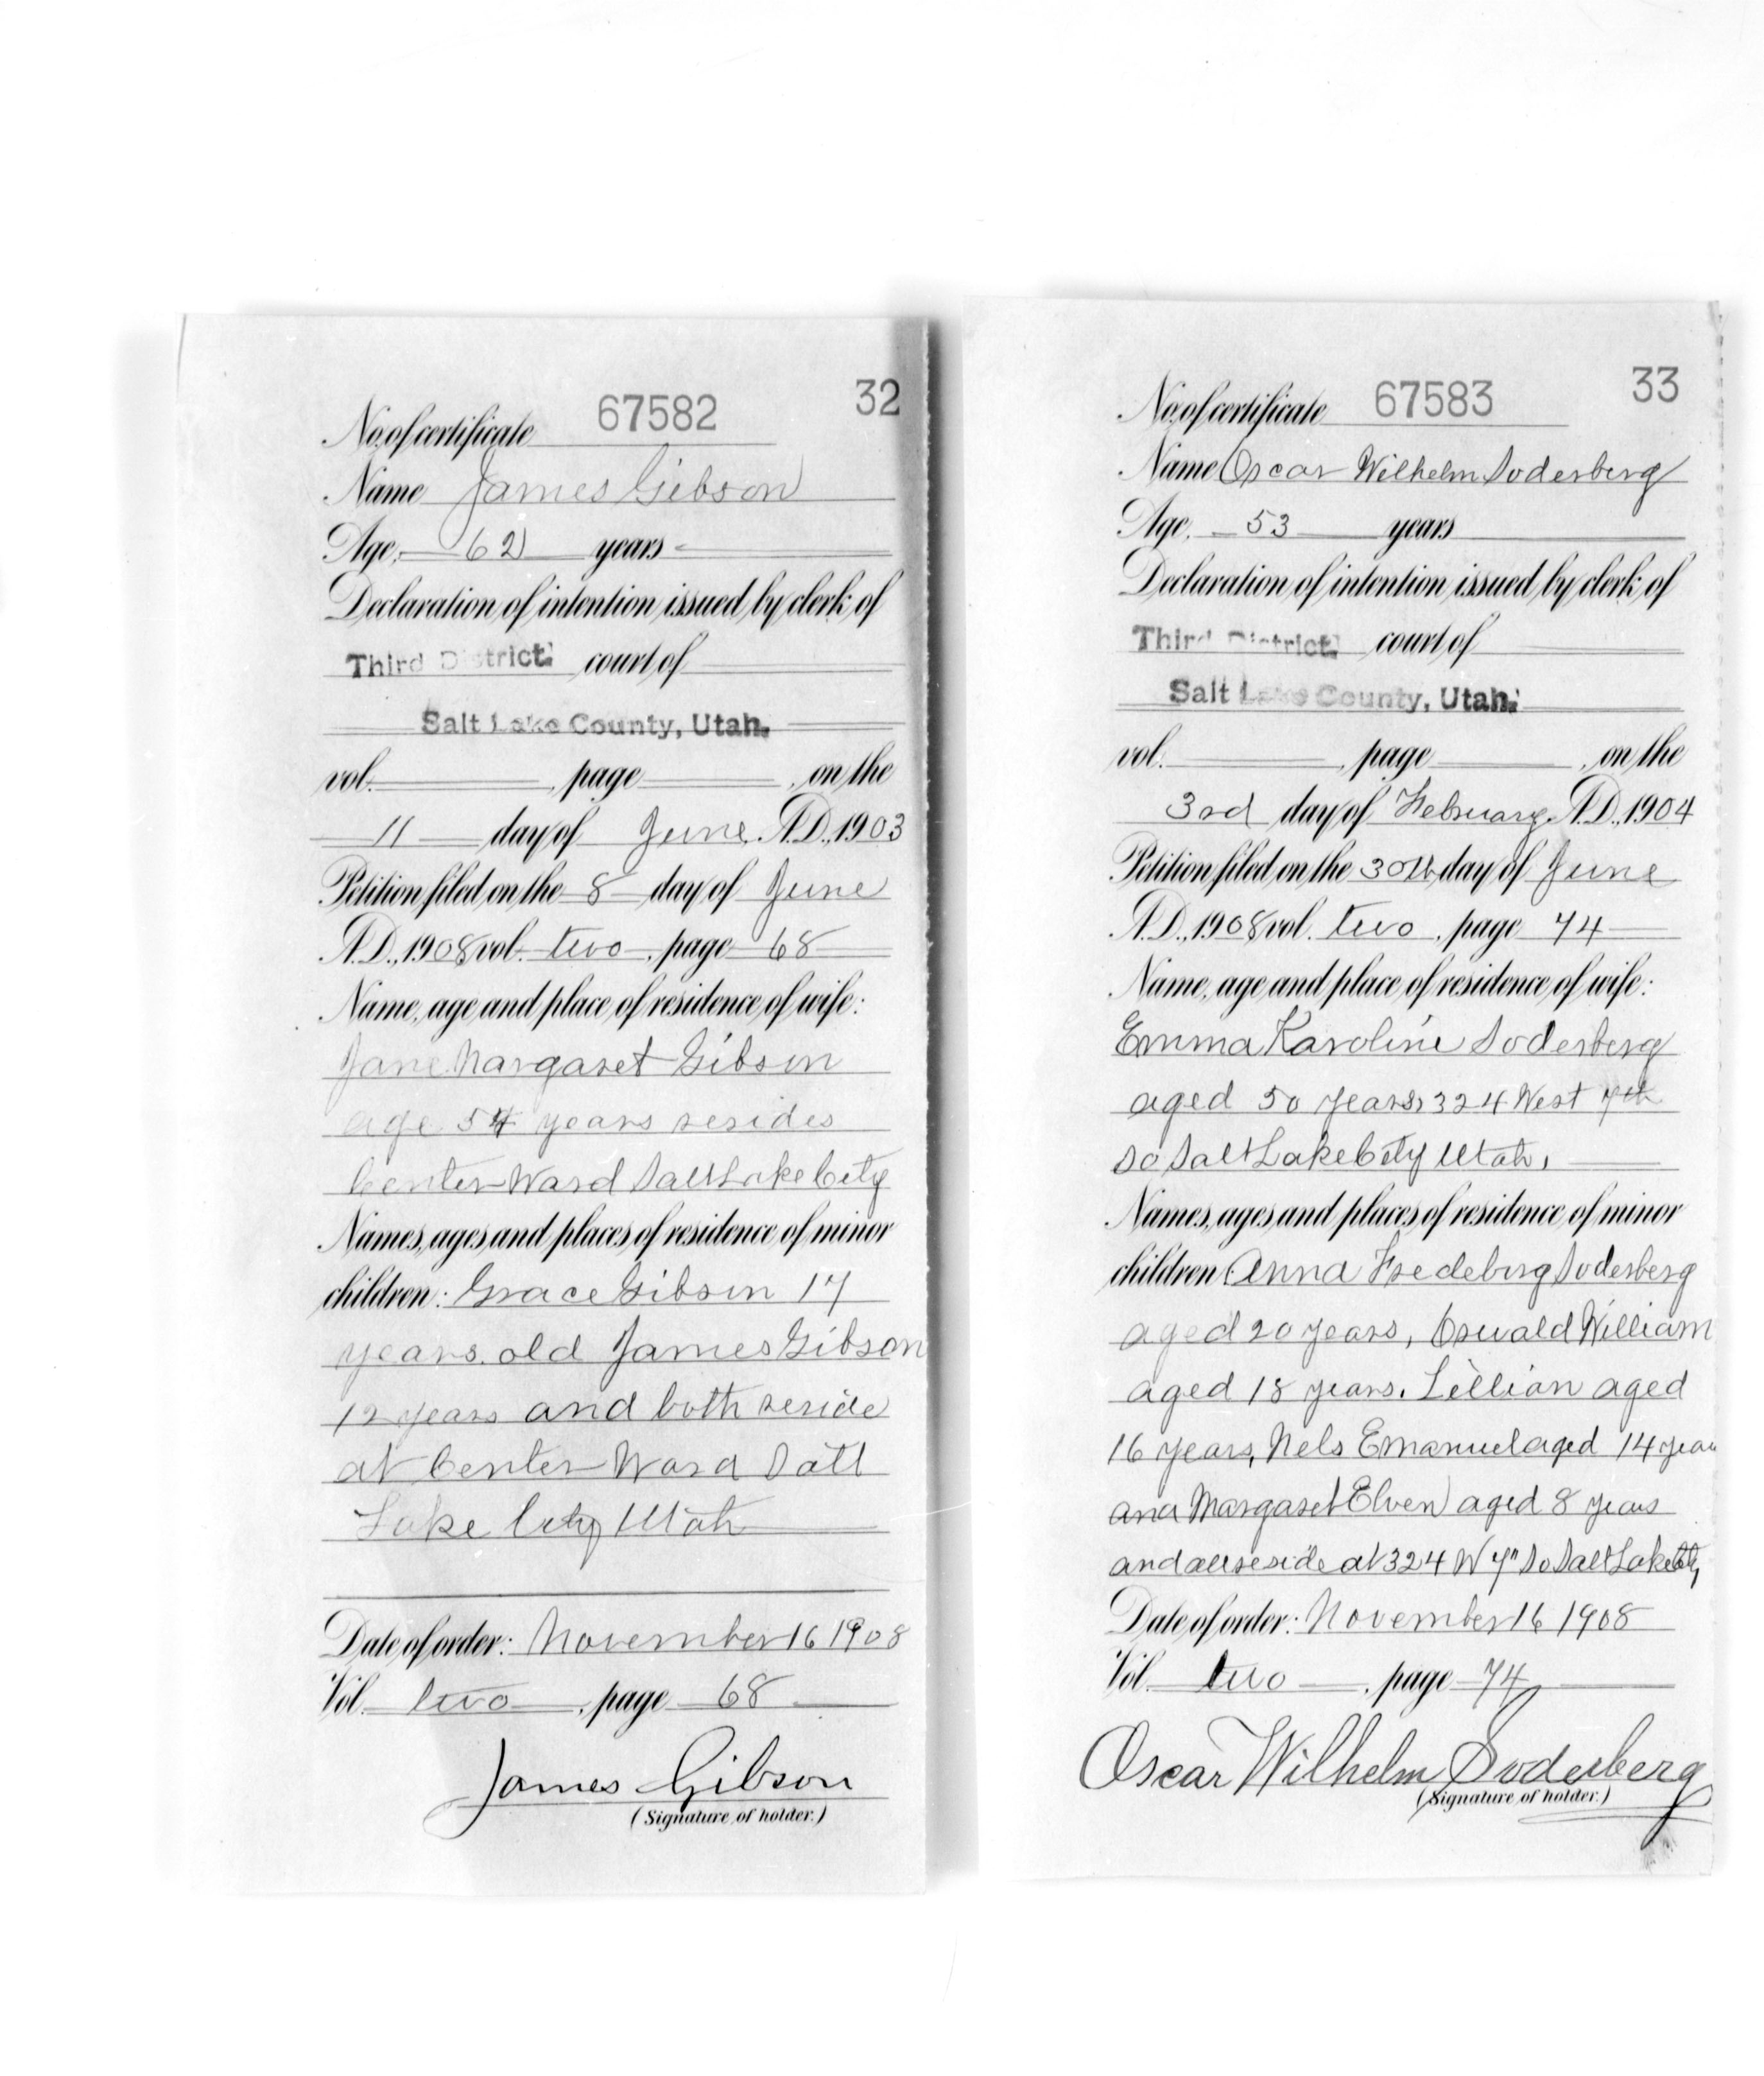 No. of certificate 67582 32
Name James Gibson
Age, 62 years
Declaration of intention issued by clerk of
Third District court of
Salt Lake County, Utah.
vol. , page , on the
11 day of June, A.D., 1903
Petition filed on the 8 day of June
A.D., 1908 vol. two, page 68
Name, age and place of residence of wife:
Jane Margaret Gibson
age 54 years resides
Center Ward Salt Lake City
Names, ages and places of residence of minor
children: Grace Gibson 17
years. old James Gibson
12 years and both reside
at Center Ward Salt
Lake City Utah
Date of order: November 16 1908
Vol. two, page 68
James Gibson
(Signature of holder.)
No. of certificate 67583 33
Name Oscar Wilhelm Soderberg
Age, 53 years
Declaration of intention issued by clerk of
Third District court of
Salt Lake County, Utah.
vol. , page , on the
3rd day of February, A.D., 1904
Petition filed on the 30th day of June
A.D., 1908 vol. two, page 74
Name, age and place of residence of wife:
Emma Karoline Soderberg
aged 50 years, 324 West 7th
So Salt Lake City Utah,
Names, ages and places of residence of minor
children: Anna Fredeborg Soderberg
aged 20 years, Oswald William
aged 18 years. Lillian aged
16 years, Nels Emanuel aged 14 years
and Margaret Elven aged 8 years
and all reside at 324 W 7" So Salt Lake City
Date of order: November 16 1908
Vol. two, page 74
Oscar Wilhelm Soderberg
(Signature of holder.)